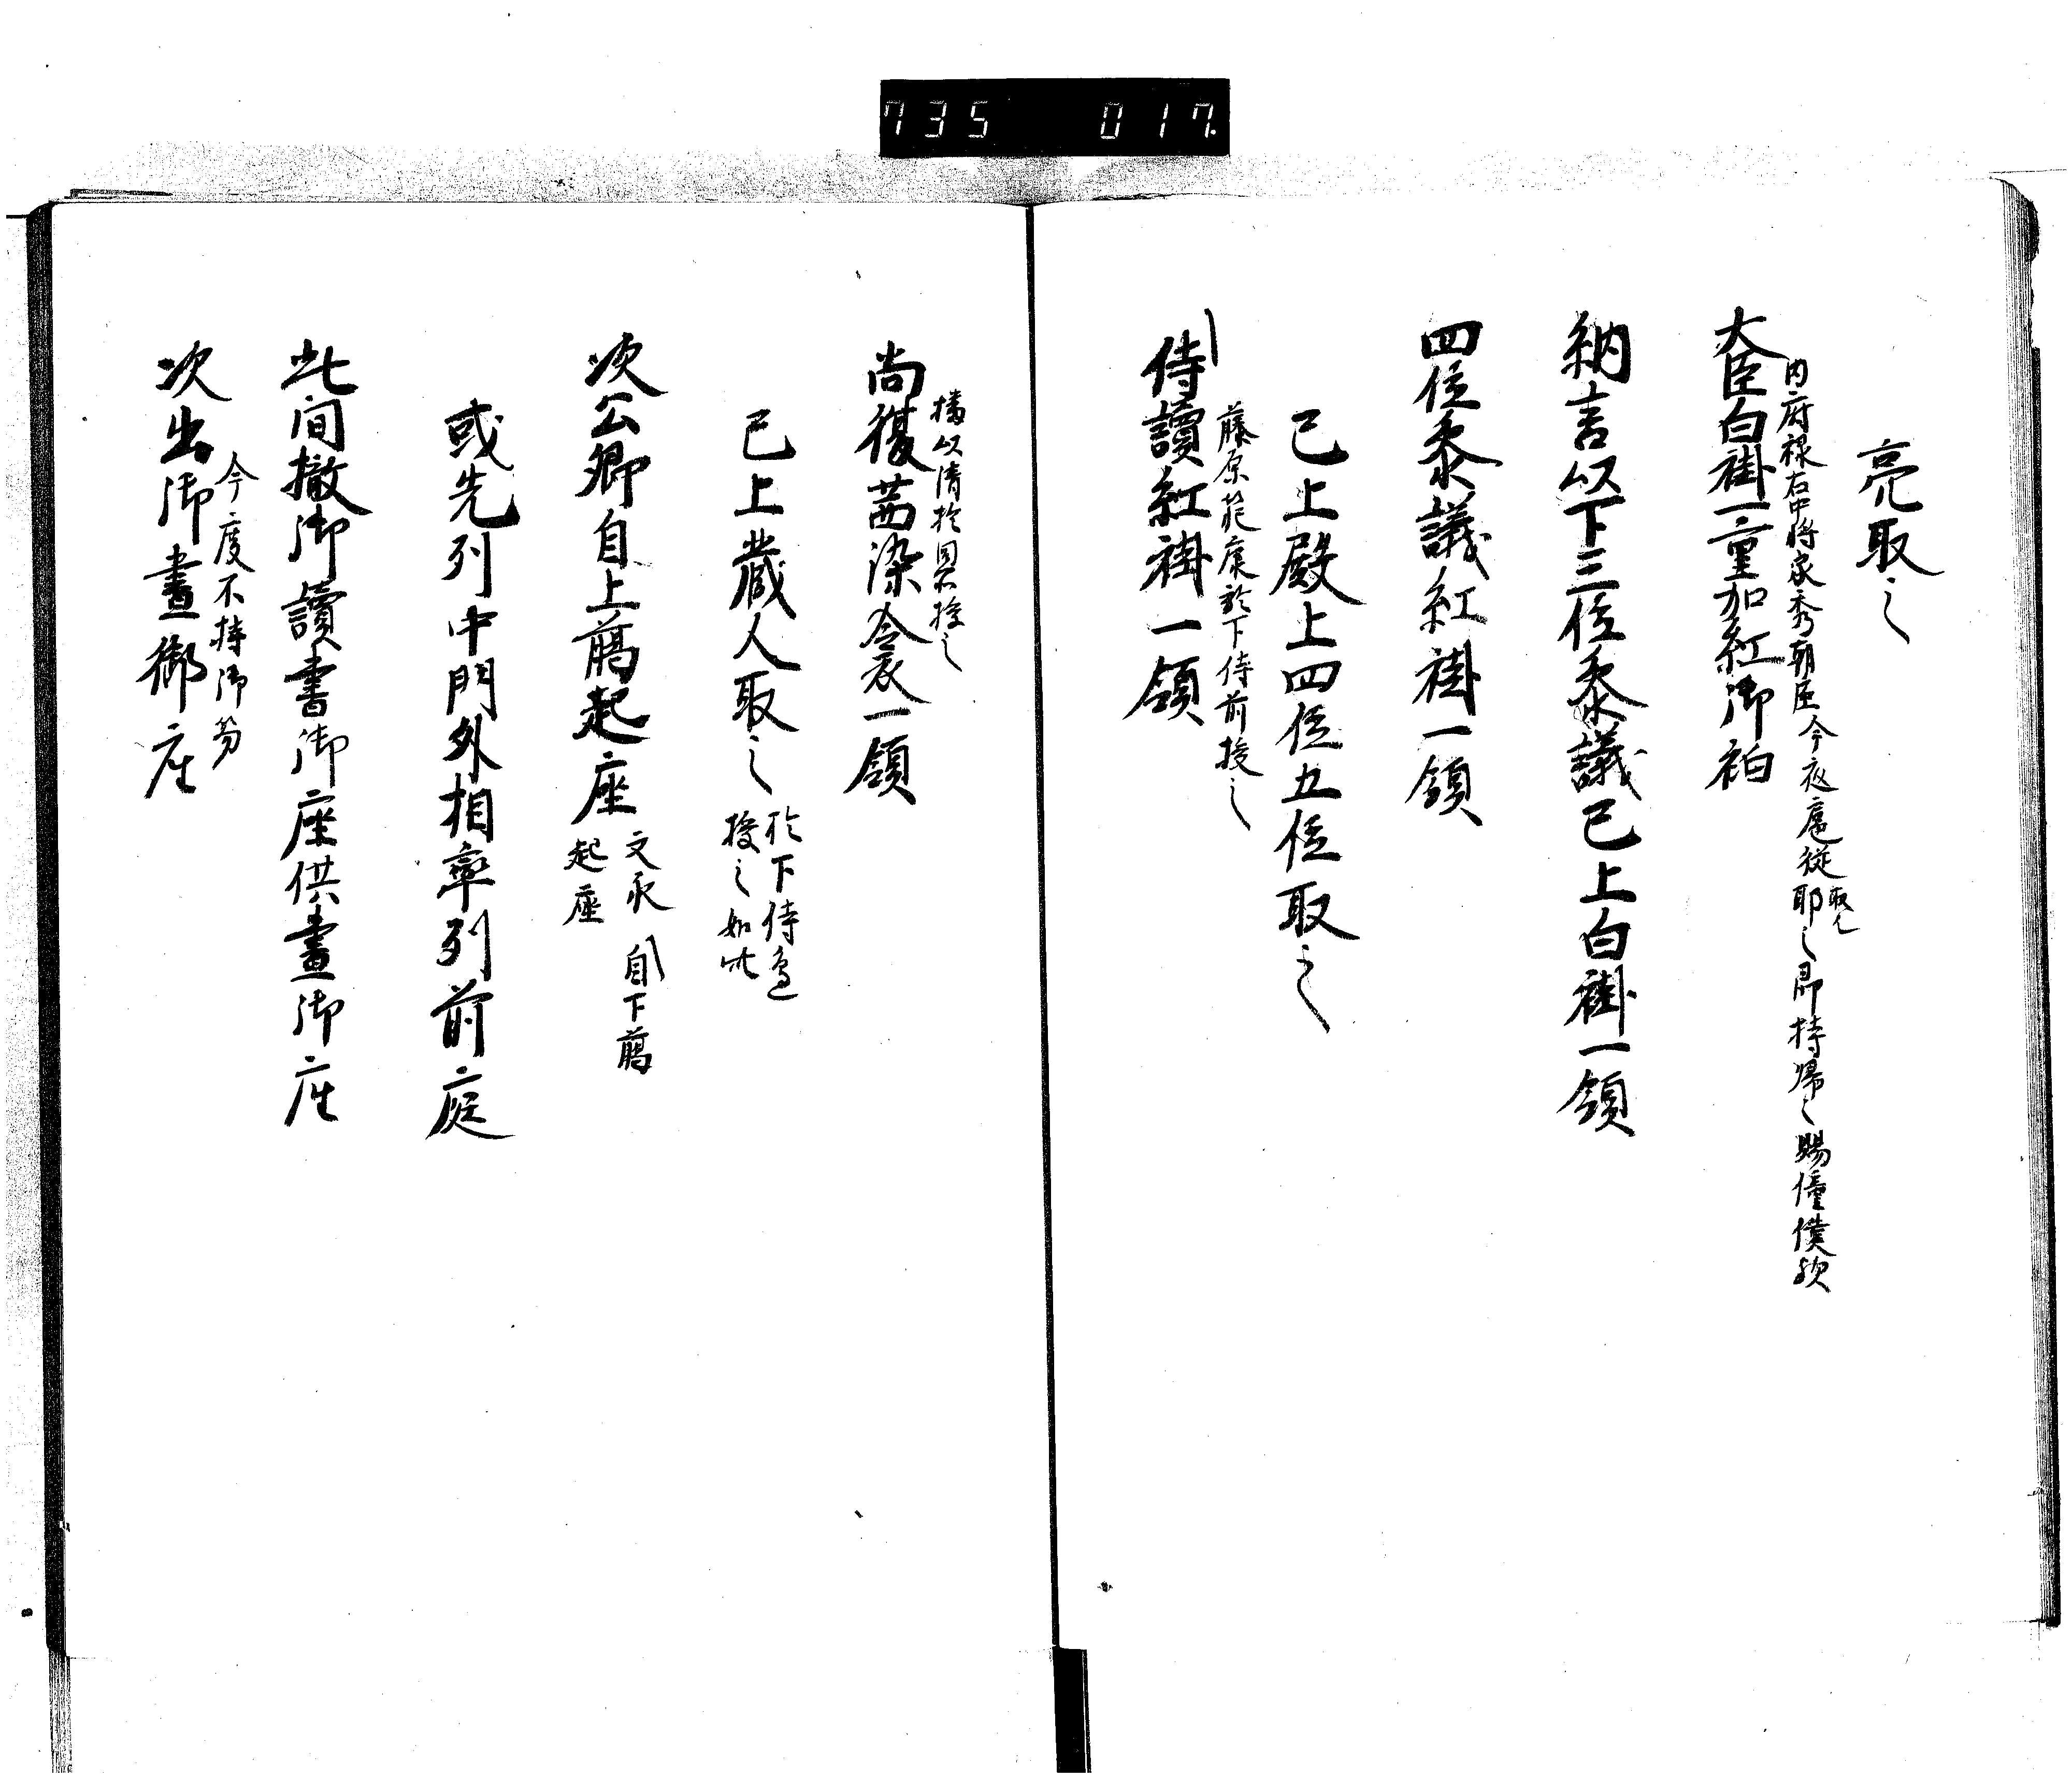 735 017.
亮取之
内府禄右中将家秀朝臣今夜扈従取之即持帰之賜僮僕欤
取人
大臣白褂一重加紅御袙
納言以下三位参議已上白褂一領
四位参議紅褂一領
已上殿上四位五位取之
藤原範康於下侍前授之
侍讀紅褂一領
橘以清於同所授之
尚復茜染衾一領
已上蔵人取之
於下侍邊
授之如此
次公卿自上﨟起座
文永 自下﨟
起座
或先列中門外相率列前庭
此間撤御讀書御座供晝御座
今度不持御笏
次出御晝御座